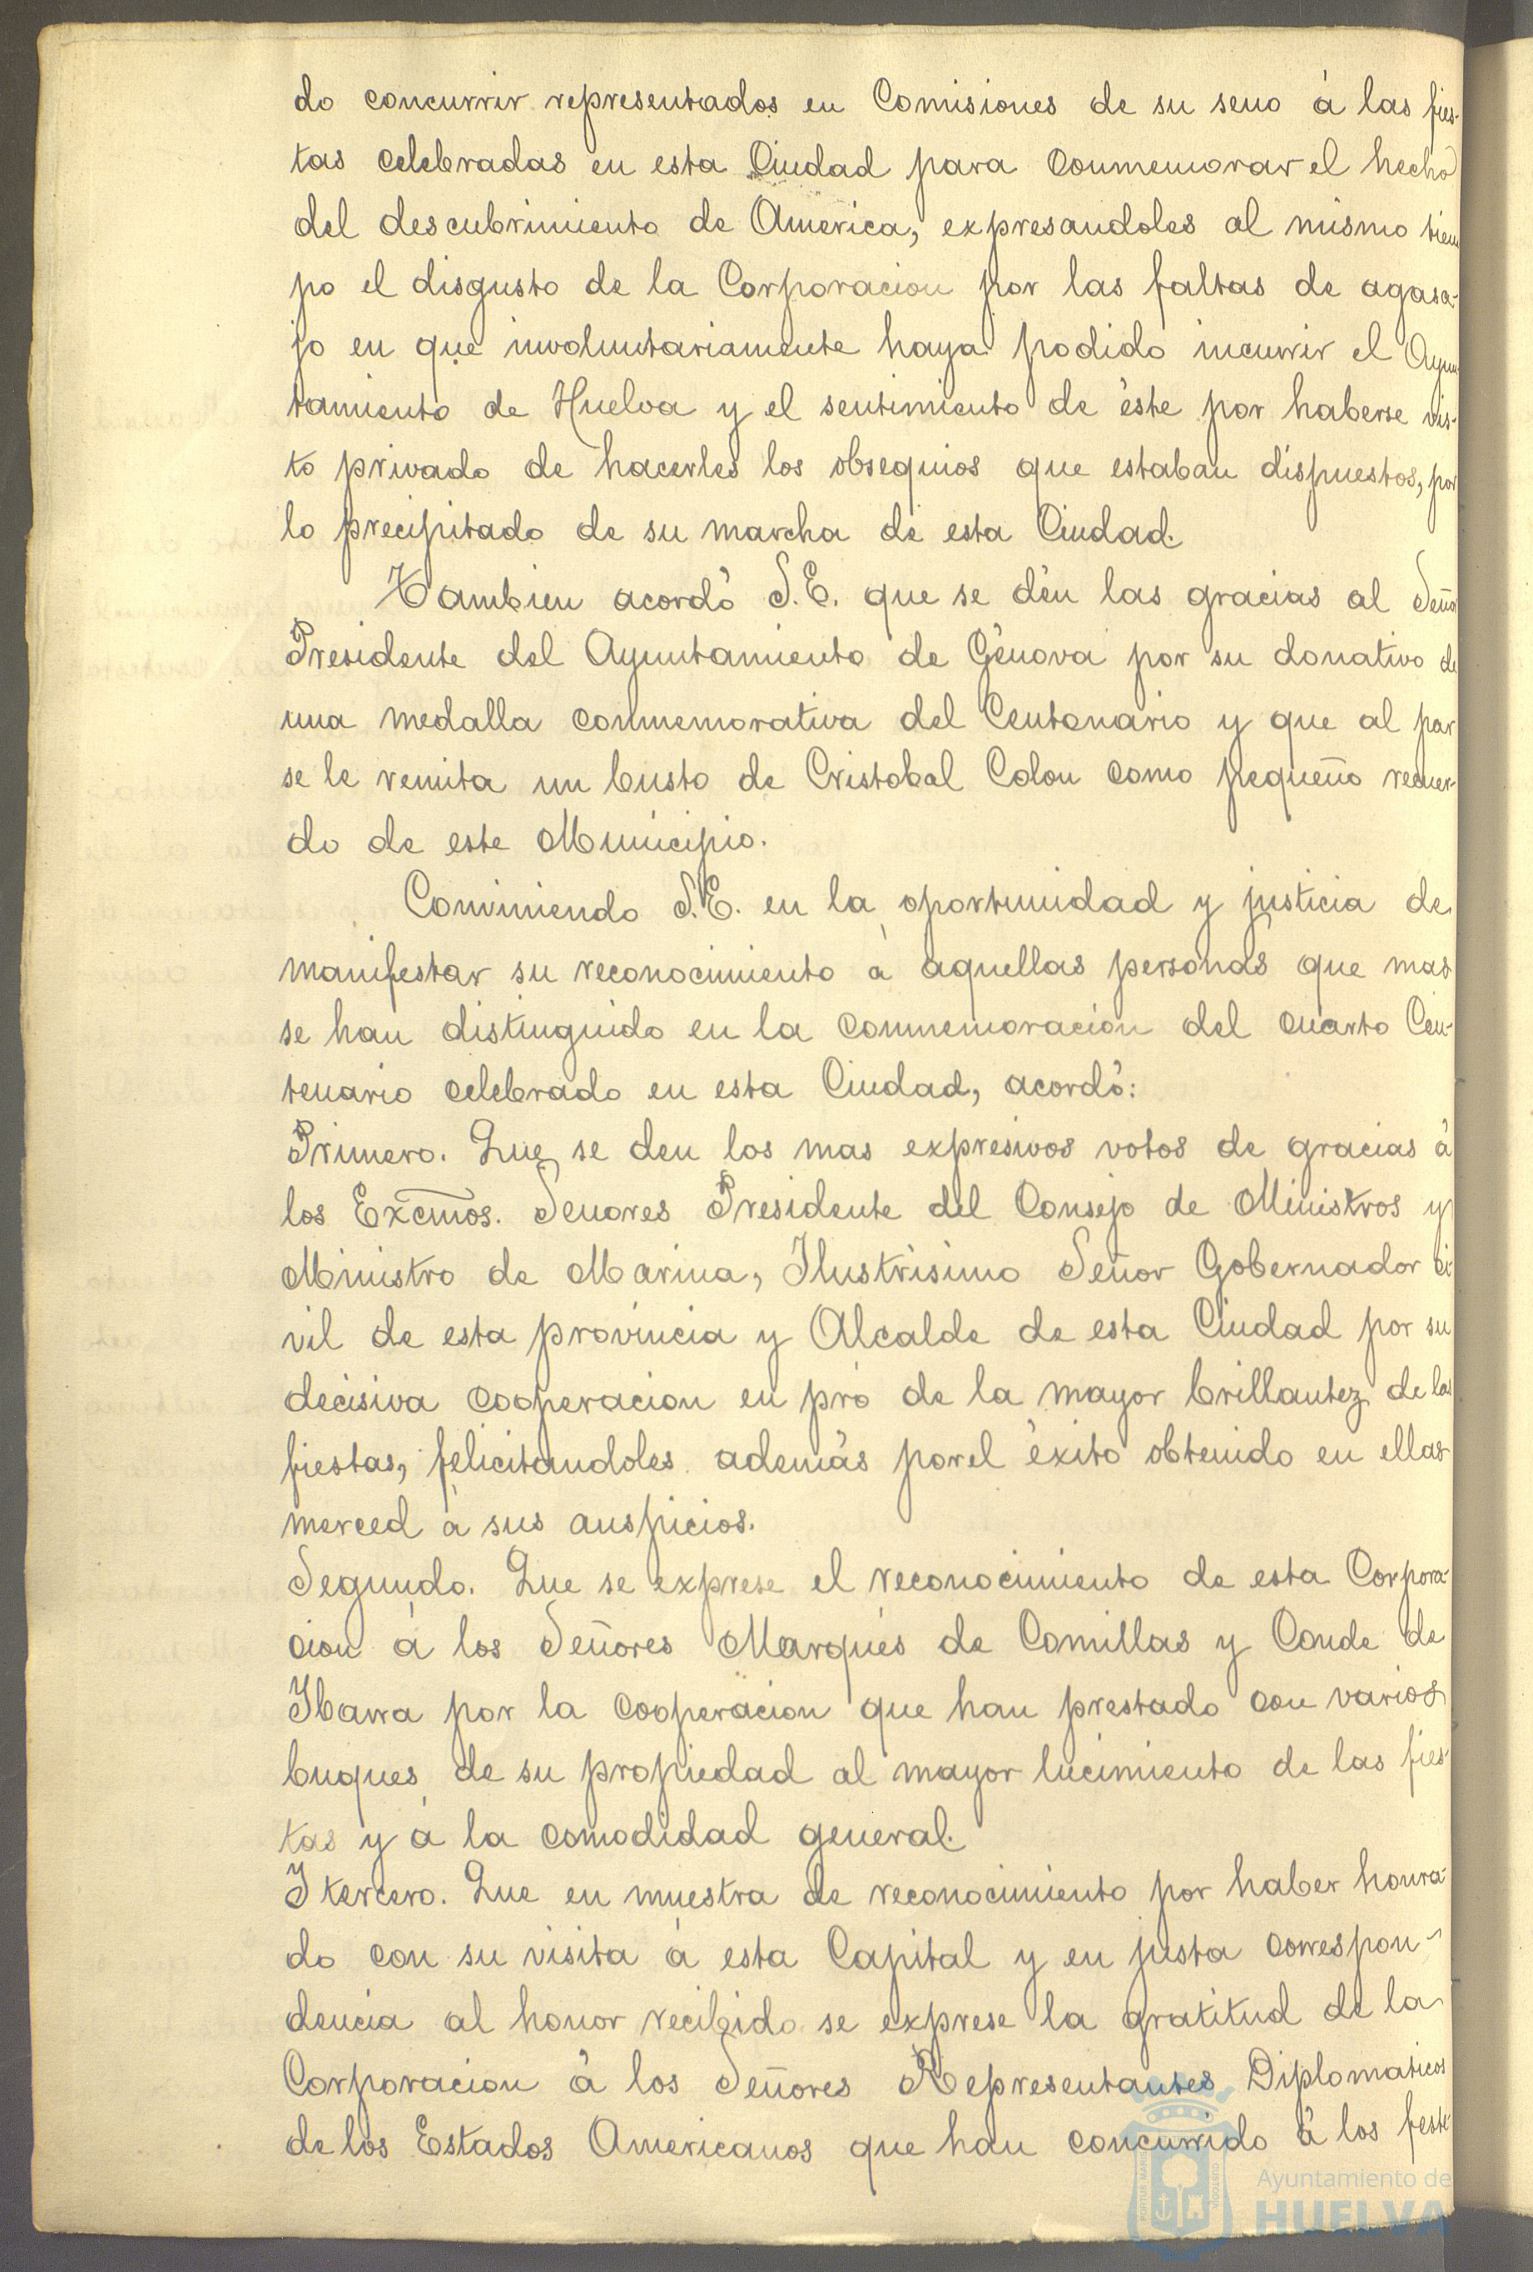 do concurrir representados en Comisiones de su seno á las fies-
tas celebradas en esta Ciudad para conmemorar el hecho
del descubrimiento de America, expresandoles al mismo tiem
po el disgusto de la Corporacion por las faltas de agasa-
jo en que involuntariamente haya podido incurrir el Ayun
tamiento de Huelva y el sentimiento de éste por haberse vis-
to privado de hacerles los obsequios que estaban dispuestos, por
lo precipitado de su marcha de esta Ciudad.
Tambien acordó S.E. que se dén las gracias al Señor
Presidente del Ayuntamiento de Génova por su donativo de
una medalla conmemorativa del Centenario y que al par
se le remita un busto de Cristobal Colon como pequeño recuer-
do de este Municipio.
Conviniendo S.E. en la oportunidad y justicia de
manifestar su reconocimiento á aquellas personas que mas
se han distinguido en la conmemoracion del cuarto Cen-
tenario celebrado en esta Ciudad, acordó:
Primero. Que se den los mas expresivos votos de gracias á
los Excmos. Senores Presidente del Consejo de Ministros y
Ministro de Marina, Ilustrisimo Señor Gobernador ci
vil de esta provincia y Alcalde de esta Ciudad por su
decisiva cooperacion en pró de la mayor brillantez de las
fiestas, felicitandoles además por el éxito obtenido en ellas
merced á sus auspicios.
Segundo. Que se exprese el reconocimiento de esta Corpora-
cion á los Señores Marqués de Comillas y Conde de
Ibarra por la cooperacion que han prestado con varios
buques de su propiedad al mayor lucimiento de las fies-
tas y á la comodidad general.
Y tercero. Que en muestra de reconocimiento por haber honra-
do con su visita á esta Capital y en justa correspon-
dencia al honor recibido se exprese la gratitud de la
Corporacion á los Señores Representantes Diplomaticos
de los Estados Americanos que han concurrido á los feste-
Ayuntamiento de
HUELVA